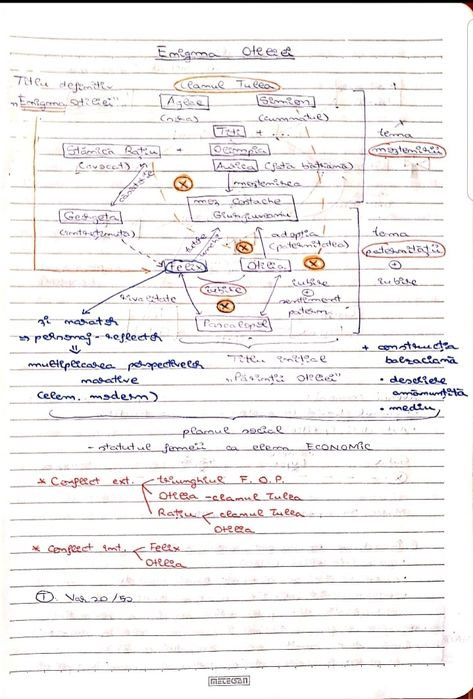 Enigma Otiliei
Titlu definitiv
"Enigma Otiliei"
clanul Tulea
Aglae Simion
(sora) (cumnatul)
Titi + ...
Stănică Rațiu + Olimpia
(avocat) Aurica (fată bătrână)
căsătorie
moștenirea
tema
moștenirii
moș Costache
Giurgiuveanu
Georgeta
(întreținută)
tutore
adopția
(paternitatea)
tema
paternității
+
iubire
Felix Otilia
iubire
rivalitate
iubire
+
sentiment
patern
Pascalopol
și narator
⇒ personaj-reflector
⇓
multiplicarea perspectivelor
narative
(elem. modern)
Titlu inițial
"Părinții Otiliei"
+ construcția
balzaciană
• descriere
amănunțită
• mediu
planul social
- statutul femeii ca elem ECONOMIC
* Conflict ext. triunghiul F. O. P.
Otilia - clanul Tulea
Rațiu clanul Tulea
Otilia
* Conflict int. Felix
Otilia
① Var 20/52
METEGRAN